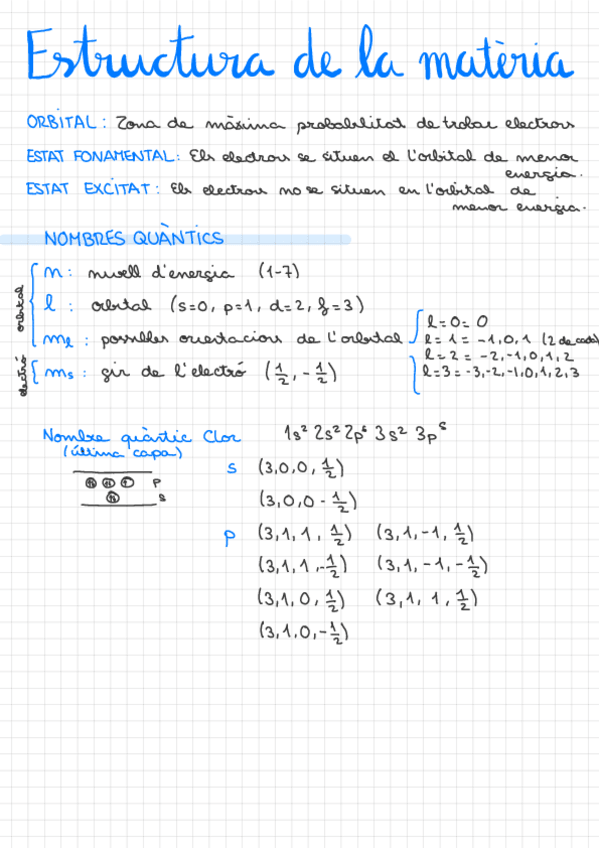 Estructura de la matèria
ORBITAL: Zona de màxima probabilitat de trobar electrons
ESTAT FONAMENTAL: Els electrons se situen el l'orbital de menor
energia.
ESTAT EXCITAT: Els electrons no se situen en l'orbital de
menor energia.
NOMBRES QUÀNTICS
orbital
n: nivell d'energia (1-7)
l: orbital (s=0, p=1, d=2, f=3)
mₗ: possibles orientacions de l'orbital
l=0=0
l=1=-1,0,1 (2 de cada)
l=2=-2,-1,0,1,2
l=3=-3,-2,-1,0,1,2,3
electró
mₛ: gir de l'electró (1/2, -1/2)
Nombre quàntic Clor 1s² 2s² 2p⁶ 3s² 3p⁵
(última capa)
p
s
s (3,0,0,1/2)
(3,0,0-1/2)
p (3,1,1,1/2) (3,1,-1,1/2)
(3,1,1,-1/2) (3,1,-1,-1/2)
(3,1,0,1/2) (3,1,1,1/2)
(3,1,0,-1/2)